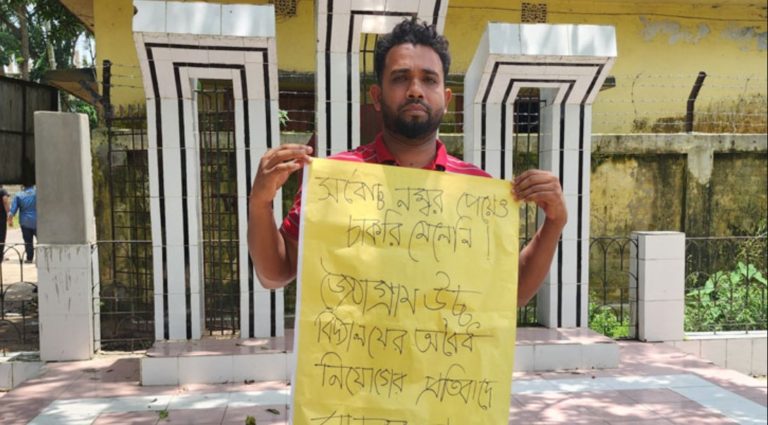 সর্বোচ্চ নম্বর পেয়েও
চাকরি মেলেনি!
উচ্চ
বিদ্যালয়ের অবৈধ
নিয়োগের প্রতিবাদে